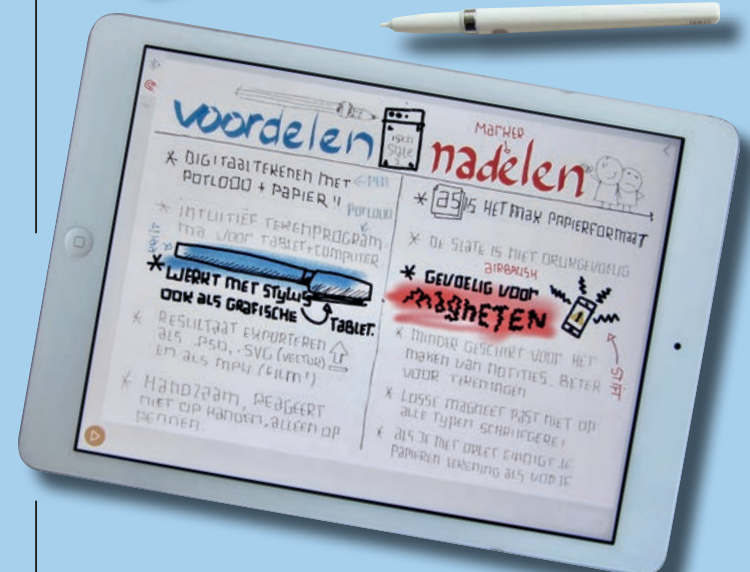 voordelen
iskn
Slate
2
* DIGITAAL TEKENEN MET ← PEN
POTLOOD + PAPIER !!
POTLOOD
* INTUITIEF TEKENPROGRAM-
MA VOOR TABLET + COMPUTER
KRIJT
* WERKT MET STYLUS
OOK ALS GRAFISCHE TABLET.
* RESULTAAT EXPORTEREN
ALS .PSD, .SVG (VECTOR)
EN ALS MP4 (FILM!)
* HANDZAAM, REAGEERT
NIET OP HANDEN, ALLEEN OP
PENNEN
MARKER
nadelen
* A5 IS HET MAX PAPIERFORMAAT
* DE SLATE IS NIET DRUKGEVOELIG
AIRBRUSH
* GEVOELIG VOOR
MAGNETEN
STIFT
* MINDER GESCHIKT VOOR HET
MAKEN VAN NOTITIES. BETER
VOOR TEKENINGEN
* LOSSE MAGNEET PAST NIET OP
ALLE TYPEN SCHRIJFGEREI
* ALS JE NIET OPLET EINDIGT JE
PAPIEREN TEKENING ALS VODJE